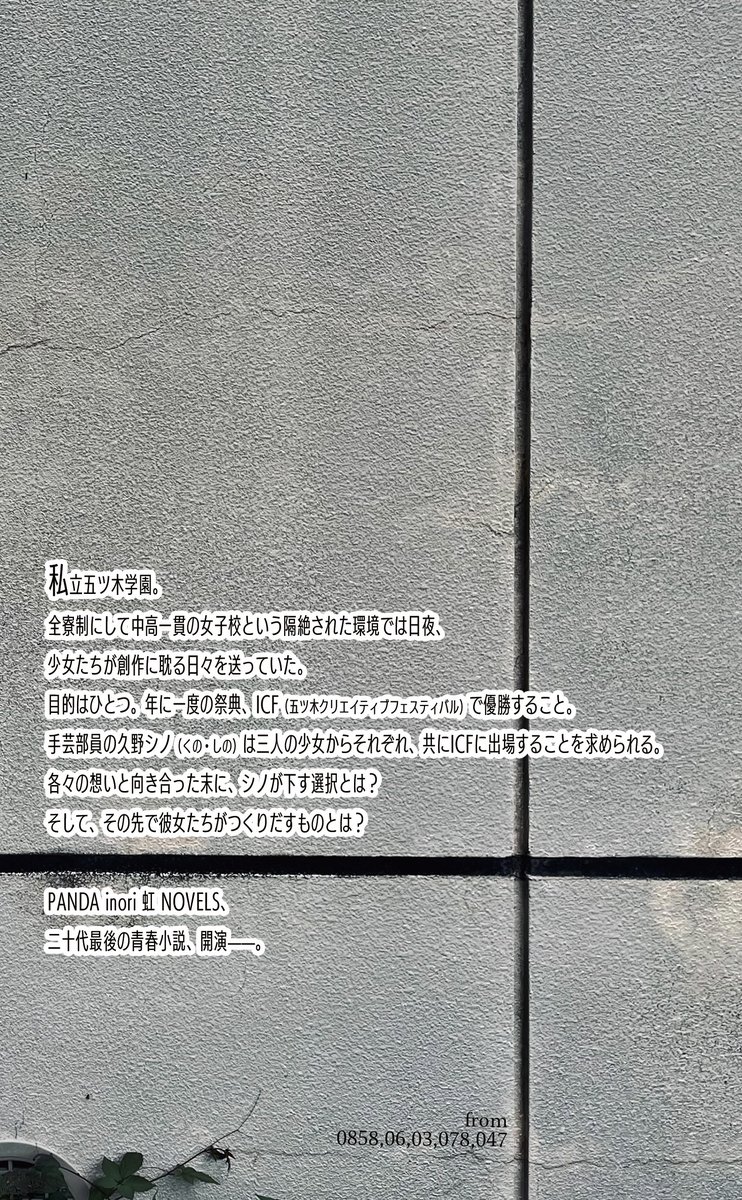 私立五ツ木学園。
全寮制にして中高一貫の女子校という隔絶された環境では日夜、
少女たちが創作に耽る日々を送っていた。
目的はひとつ。年に一度の祭典、ICF（五ツ木クリエイティブフェスティバル）で優勝すること。
手芸部員の久野シノ（くの・しの）は三人の少女からそれぞれ、共にICFに出場することを求められる。
各々の想いと向き合った末に、シノが下す選択とは？
そして、その先で彼女たちがつくりだすものとは？
PANDA inori 虹 NOVELS、
二十代最後の青春小説、開演――。
from
0858,06,03,078,047